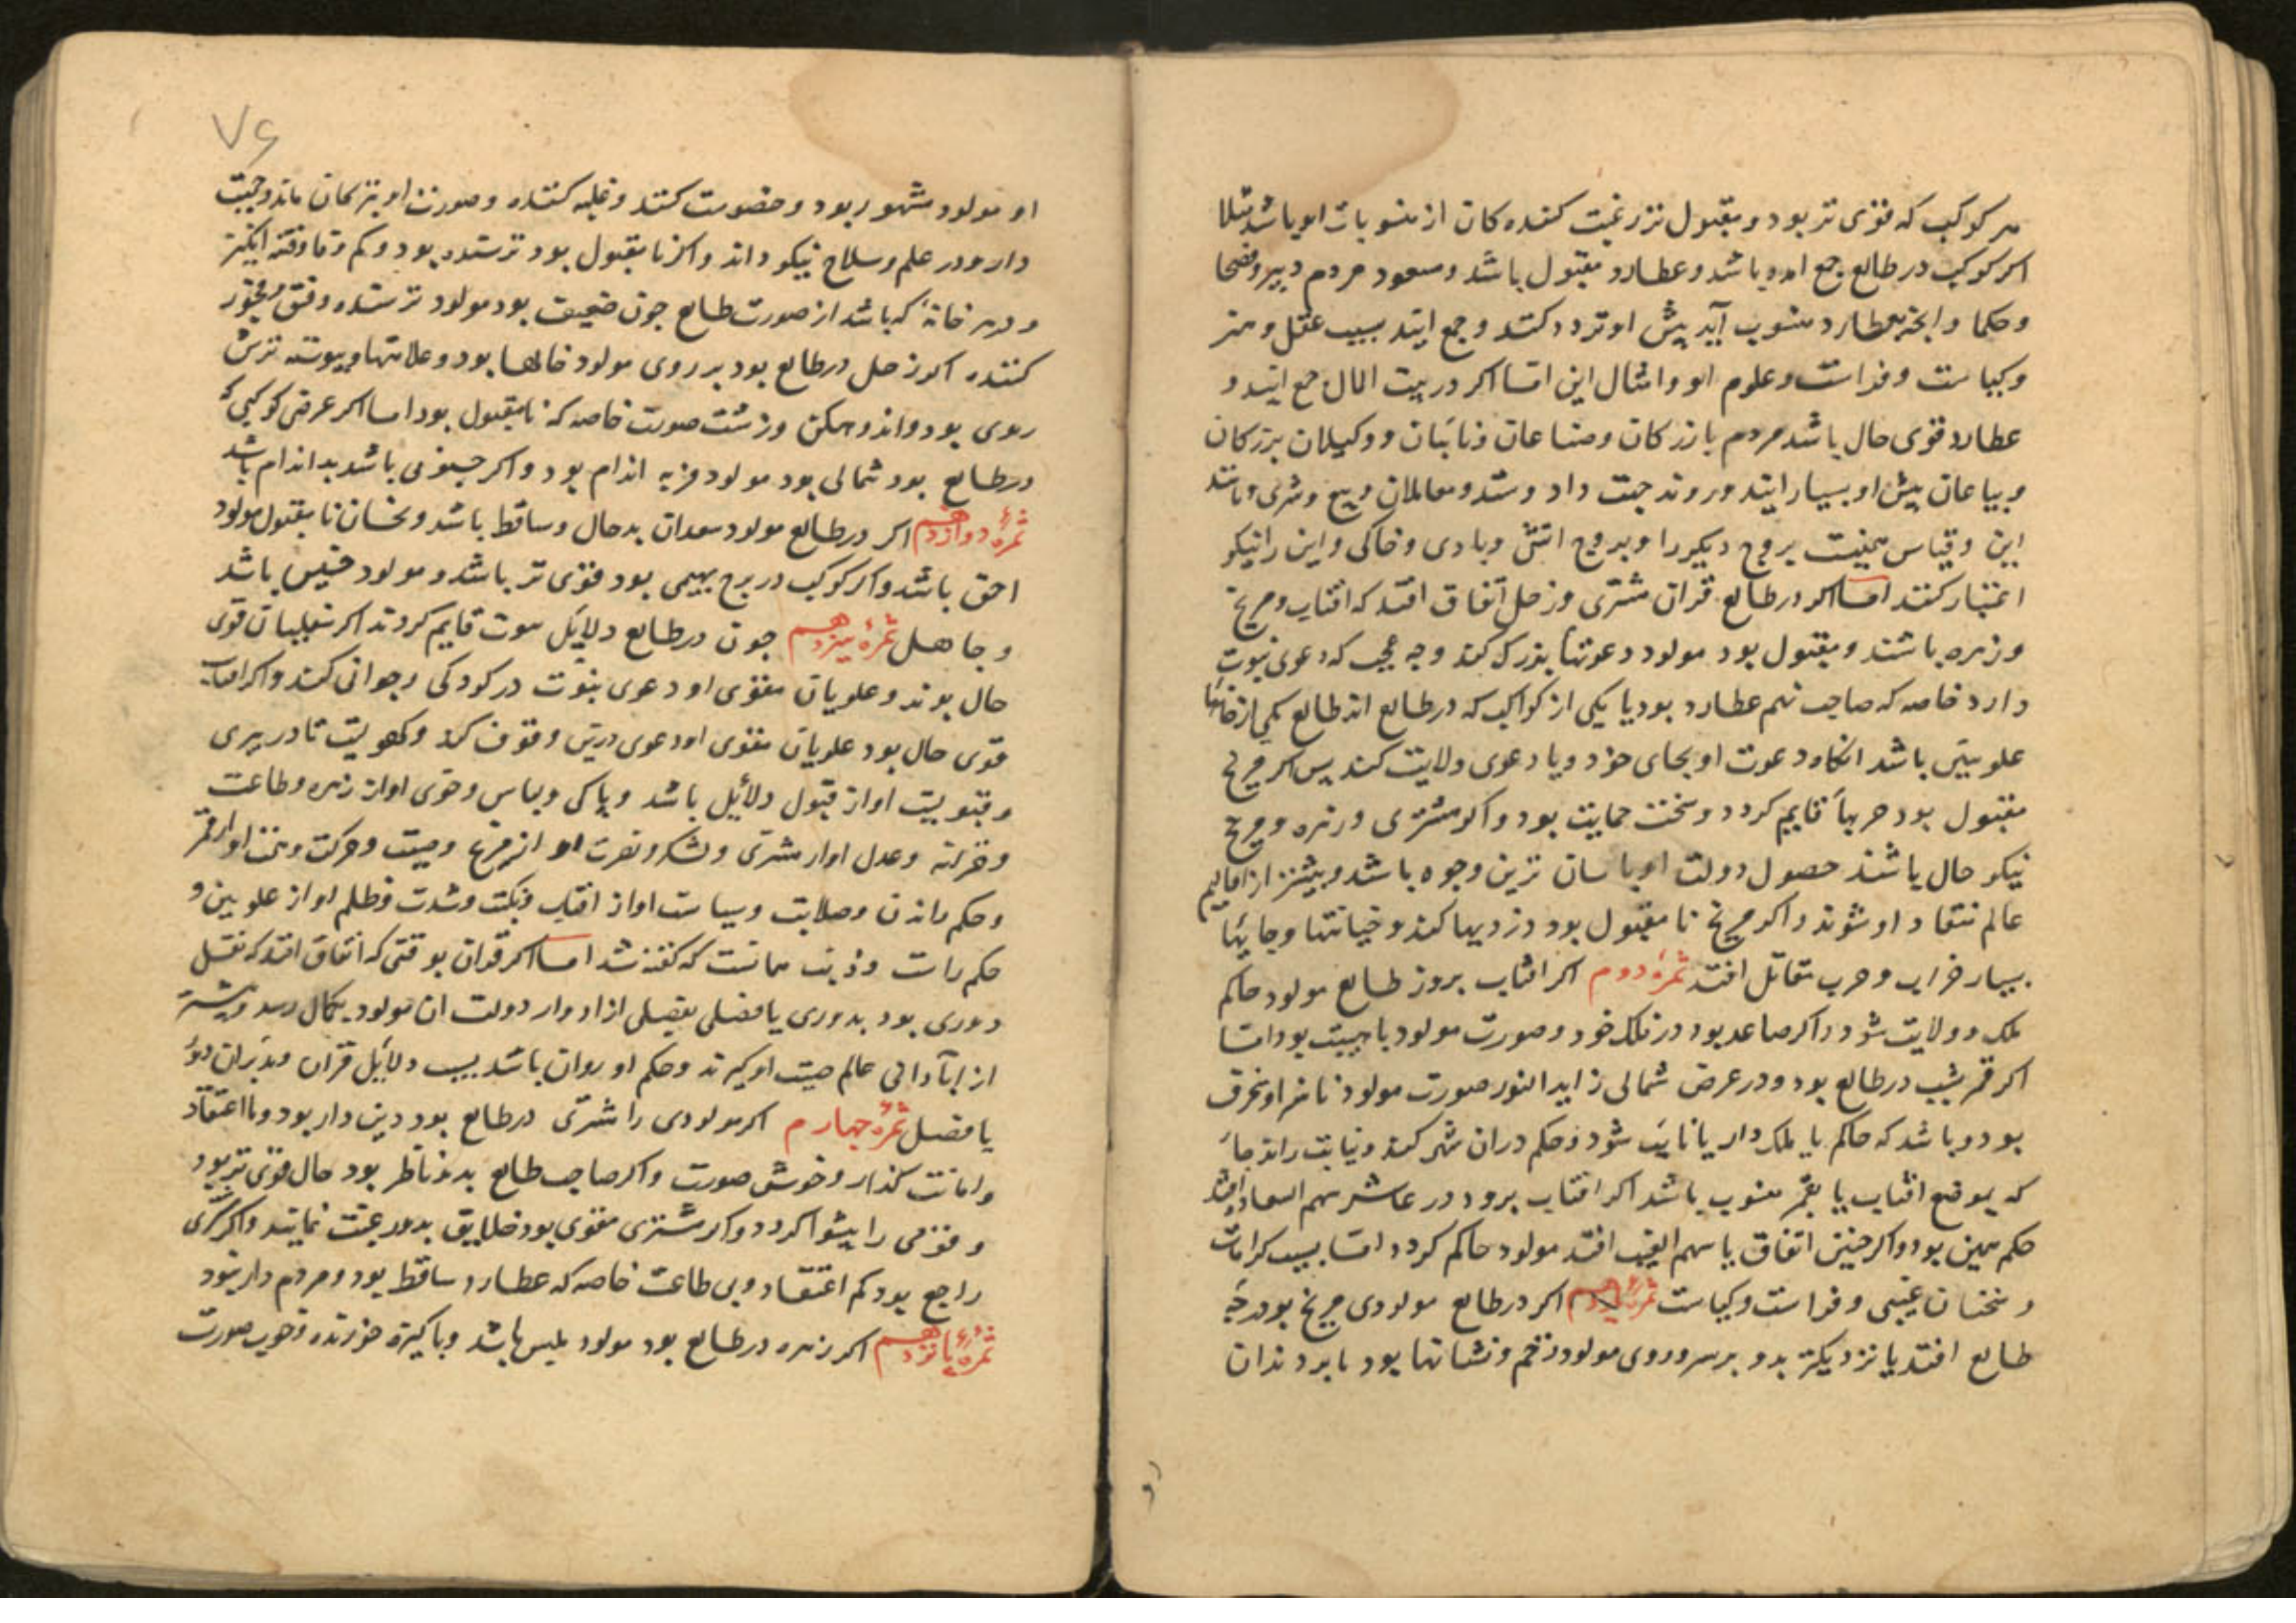 هر کوکب که قوی تر بود و مقبول تر رغبت کننده کان از منسوبات او باشد مثلا
اکر کوکب در طالع جمع امده باشد و عطارد مقبول باشد و مسعود مردم دبیر و فصحا
و حکما و انچه بعطارد منسوب آید پیش او تردد کنند و جمع ایند بسبب عقل و هنر
و کیاست و فراست و علوم او و امثال این اما اکر در بیت المال جمع ایند و
عطارد قوی حال باشد مردم بازرکان و صناعان و نائبان و وکیلان بزرکان
و بیاعان پیش او بسیار ایند و روند جهت داد و ستد و معاملان و بیع و شری و مانند
این و قیاس بروج دیکر را و بروج اتشی و بادی و خاکی و این را نیکو
اعتبار کنند اما اکر در طالع قران مشتری و زحل اتفاق افتد که افتاب و مریخ
و زهره باشند و مقبول بود مولود دعوتها بزرک کند و چه عجب که دعوی نبوت
دارد خاصه که صاحب نهم عطارد بود یا یکی از کواکب که در طالع اند طالع یکی از خانها
علویین باشد انکاه دعوت او بجای خود و یا دعوی ولایت کند پس اکر مریخ
مقبول بود حربها قایم کردد و سخت حمایت بود و اکر مشتری و زهره و مریخ
نیکو حال باشند حصول دولت او باسان ترین وجوه باشد و بیشتر از اقالیم
عالم منقاد او شوند و اکر مریخ نا مقبول بود دزدیها کند و خیانتها و جایها
بسیار خراب و حرب مقاتل افتد ثمرهٔ دوم اکر افتاب بروز طالع مولود حاکم
ملک و ولایت شود و اکر صاعد بود در فلک خود و صورت مولود با هیبت بود اما
اکر قمر بشب در طالع بود و در عرض شمالی زاید النور صورت مولود
بود و باشد که حاکم یا ملک دار یا نایب شود و حکم دران شهر کند و نیابت راند
که بموضع افتاب یا بقمر منسوب باشد اکر افتاب بروز در عاشر سهم السعاده افتد
حکم همین بود و اکر چنین اتفاق با سهم الغیب افتد مولود حاکم کردد اما بسبب کرامات
و سخنان غیبی و فراست و کیاست ثمرهٔ اکر در طالع مولودی مریخ بود درجهٔ
طالع افتد یا نزدیکتر بدو بر سر و روی مولود زخم و نشانها بود یا بر دندان
۷۶
او مولود مشهور بود و خصومت کنند و غلبه کننده و صورت او بترکان ماند و هیبت
دارد و در علم و سلاح نیکو داند و اکر نا مقبول بود ترسنده بود و فتنه انکیز
و در هر خانهٔ که باشد از صورت طالع چون ضعیف بود مولود ترسنده و فسق و فجور
کننده اکر زحل در طالع بود بر روی مولود خالها بود و علامتها و پیوسته ترش
روی بود و اندوهکن و زشت صورت خاصه که نا مقبول بود اما اکر عرض کوکبی که
در طالع بود شمالی بود مولود فربه اندام بود و اکر جنوبی باشد بد اندام باشد
ثمرهٔ دوازدهم اکر در طالع مولود سعدان بد حال و ساقط باشد و نحسان نا مقبول مولود
احمق باشد و اکر کوکب در برج بهیمی بود قوی تر باشد و مولود خسیس باشد
و جاهل ثمرهٔ سیزدهم چون در طالع دلایل موت قایم کردند اکر سفلیان قوی
حال بوند و علویان مقوی او دعوی نبوّت در کودکی و جوانی کند و اکر افتاب
قوی حال بود علویان مقوی او دعوی درین وقوف کند و کهولیت تا در پیری
و قبولیت او از قبول دلایل باشد و پاکی و لباس و خوی او از زهره و طاعت
و خزینه و عدل او از مشتری و لشکر و نصرت او از مریخ و صیت و حرکت و سخن او از قمر
و حکم راندن و صلابت و سیاست او از افتاب و نکبت و شدت و ظلم او از علویین و
حکم رات و ذنب همانست که کفته شد اما اکر قران بوقتی که اتفاق افتد که نقل
دوری بود بدوری یا فصلی بفصلی از ادوار دولت ان مولود بکمال رسد و بیشتر
از ابادانی عالم صیت او کیرند و حکم او روان باشد بسبب دلایل قران
یا فصل ثمرهٔ چهاردم اکر مولودی را مشتری در طالع بود دین دار بود و با اعتقاد
و امانت کذار و خوش صورت و اکر صاحب طالع بدو ناظر بود حال قوی تر بود
و قومی را پیشوا کردد و اکر مشتری مقوی بود خلایق بدو رغبت نمایند و اکر مشتری
راجع بود کم اعتقاد و بی طاعت خاصه که عطارد ساقط بود و مردم دار نبود
ثمرهٔ پانزدهم اکر زهره در طالع بود مولود ملیس باشد و پاکیزه خورنده و خوب صورت